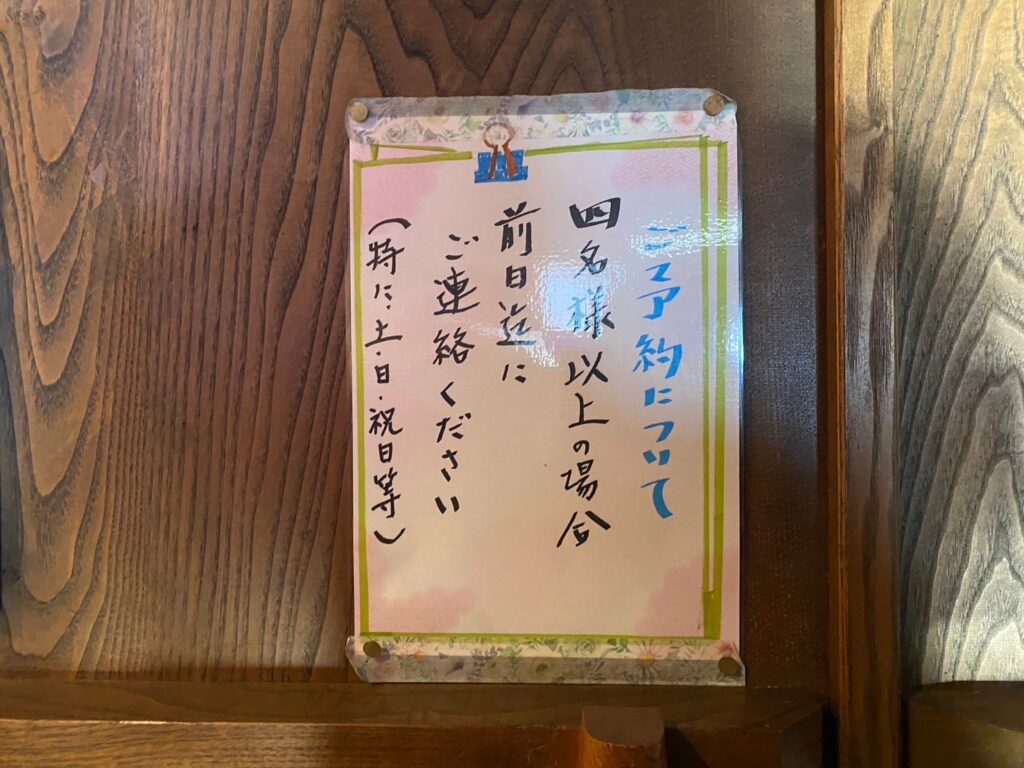 ご予約について
四名様以上の場合
前日迄に
ご連絡ください
(特に、土・日・祝日等)